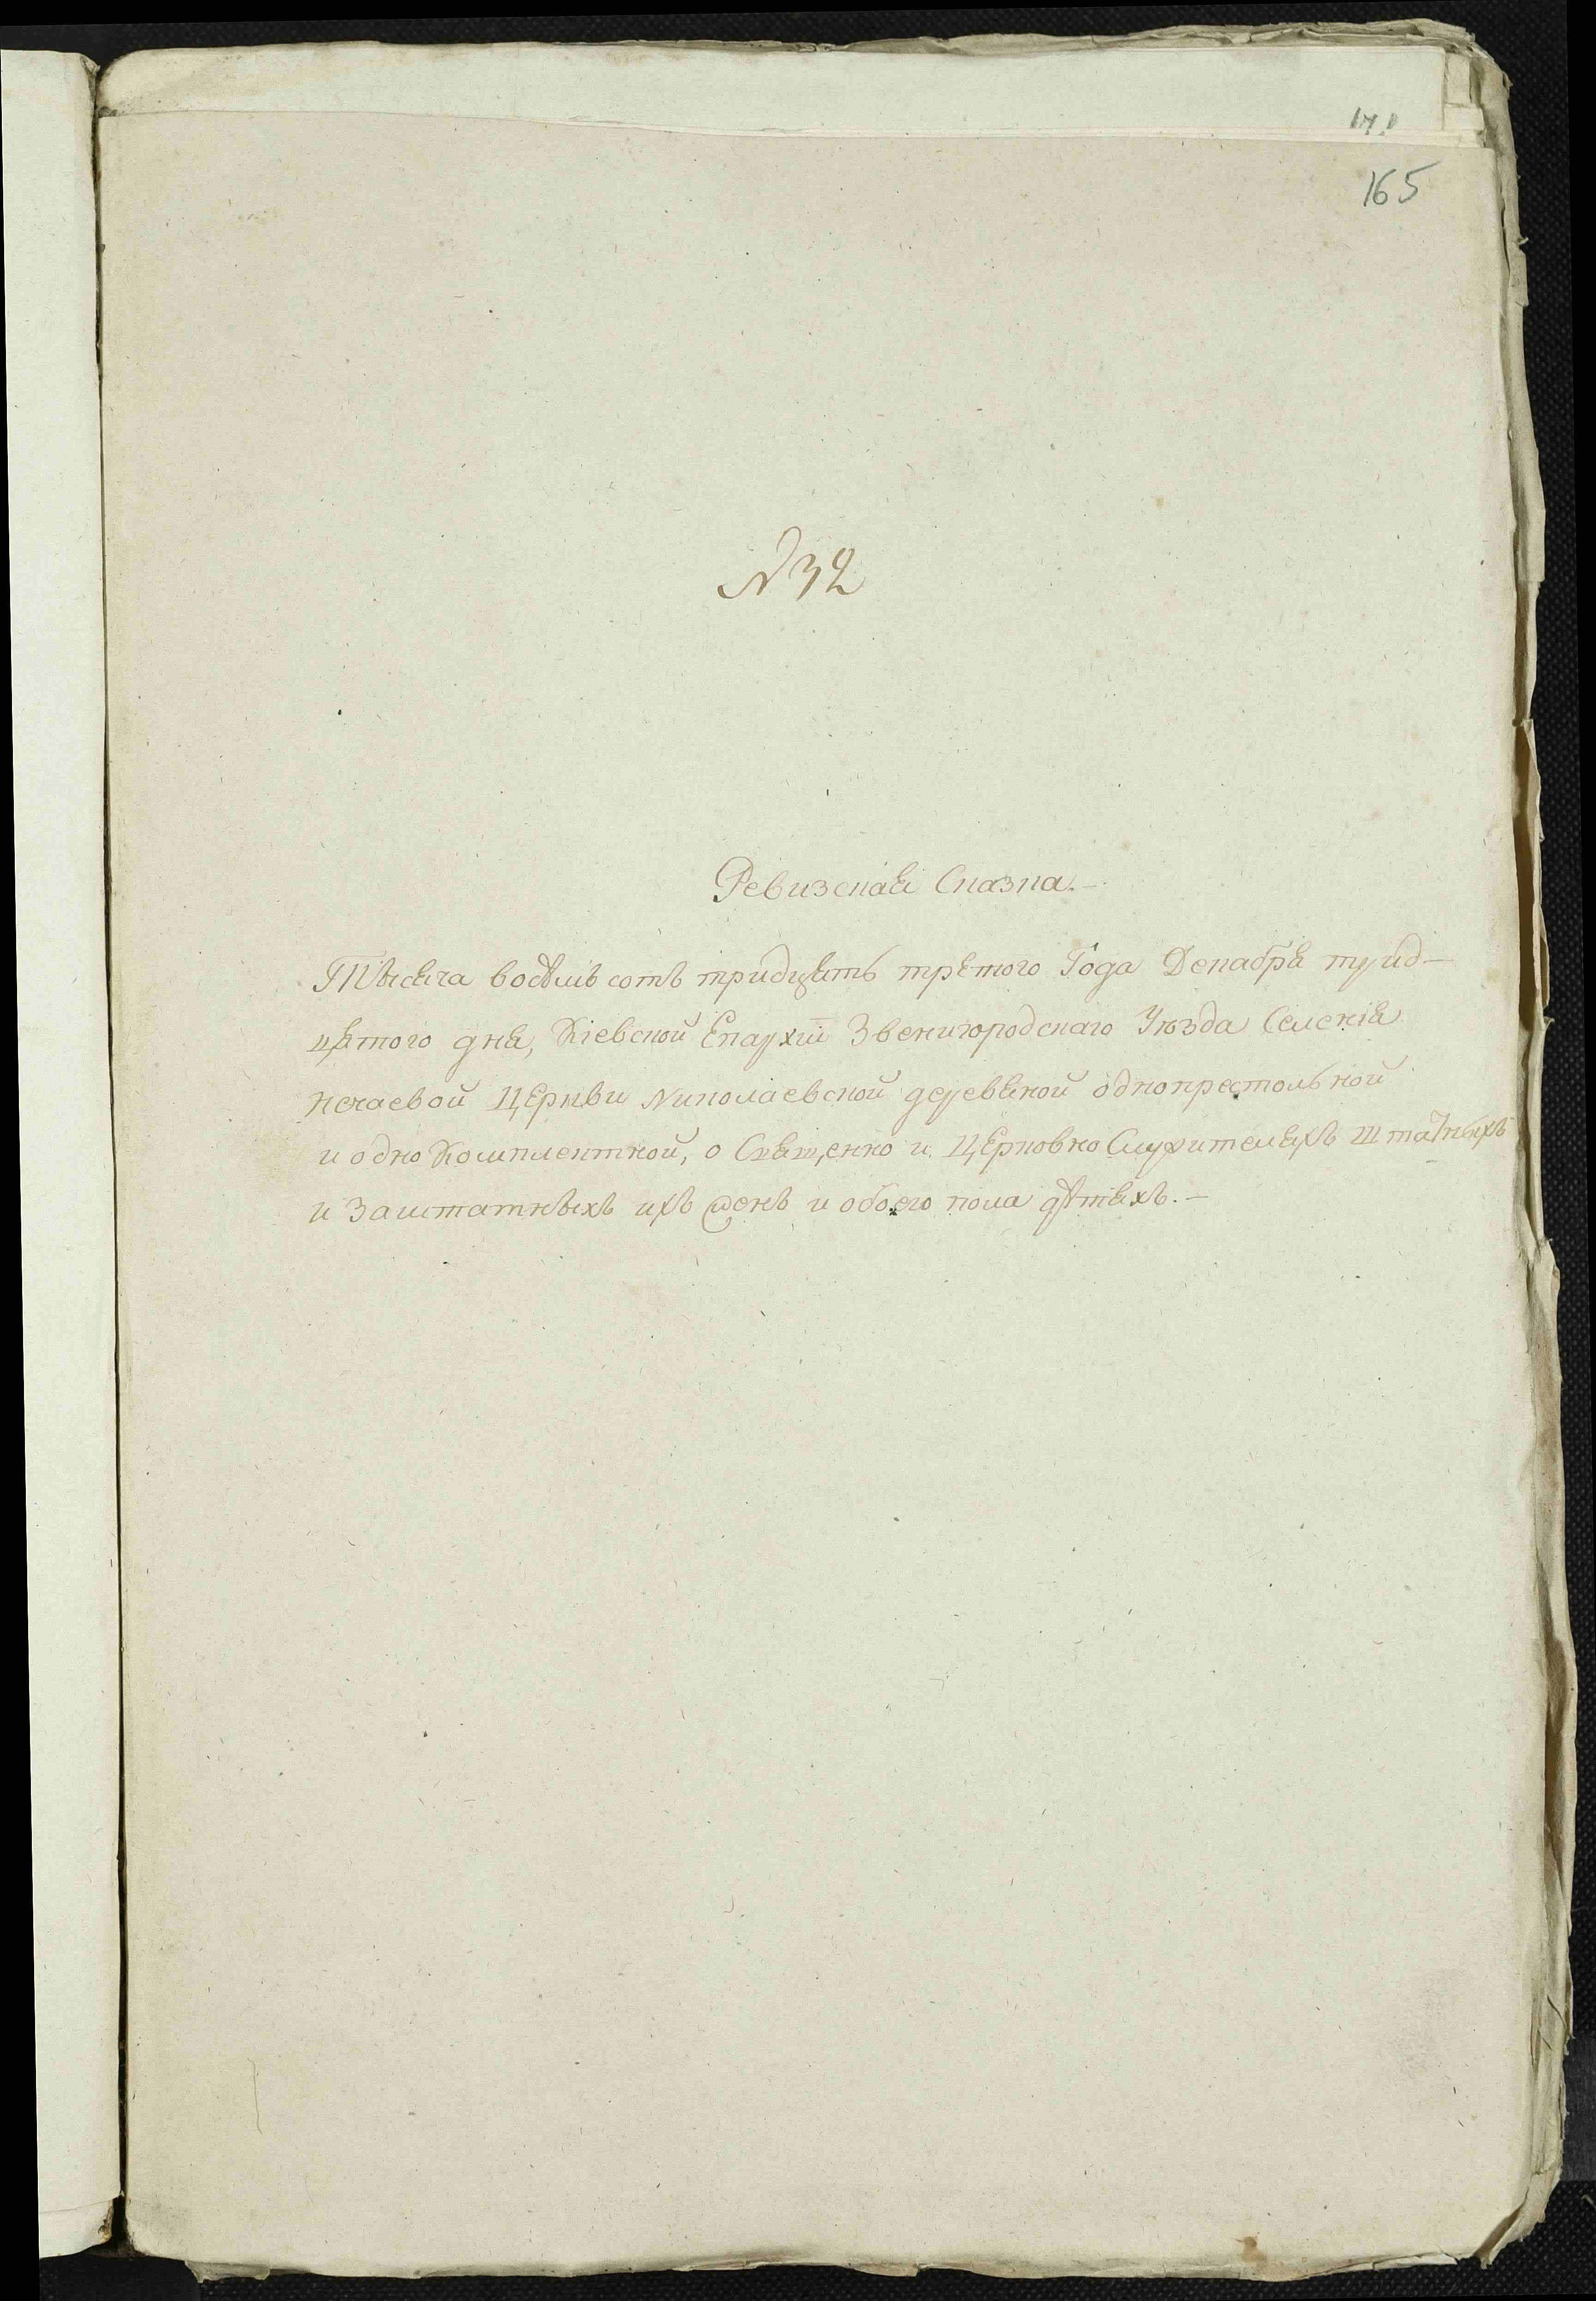 165
№32
Ревизская Сказка.-
Тысяча восѣмь сотъ тридцять третого Года Декабря трид-
цятого дня, Кіевской Епархіи Звенигородскаго Уѣзда Селенія
Нечаевой Церкви Николаевской деревяной однопрестольной
и однокомплектной, о Священно и Церковно Служителяхъ Штатныхъ
и Заштатныхъ ихъ женъ и обоего пола дѣтяхъ.-